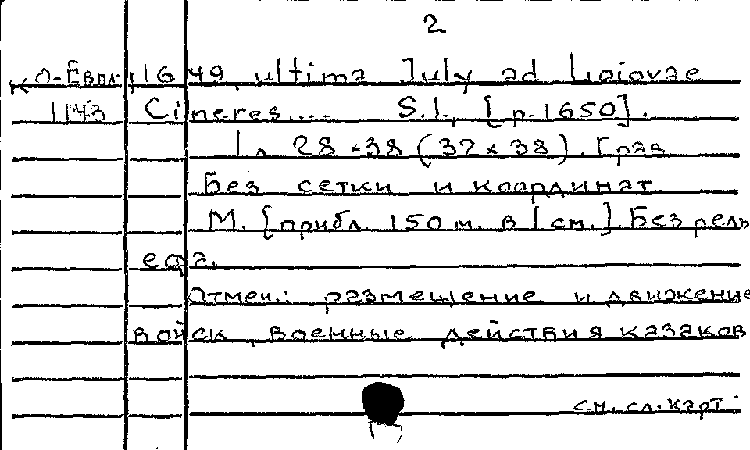 2
К О-Евпл. 1649, ultima July ad Loiovae
1143 Cineres... S.l., [p. 1650].
1 л 28×38 (32×38). Грав
Без сетки и координат
М. [прибл. 150 м. в 1 см.] Без рель
ефа.
Отмеч.: размещение и движение
войск, военные действия казаков
см. сл. карт.